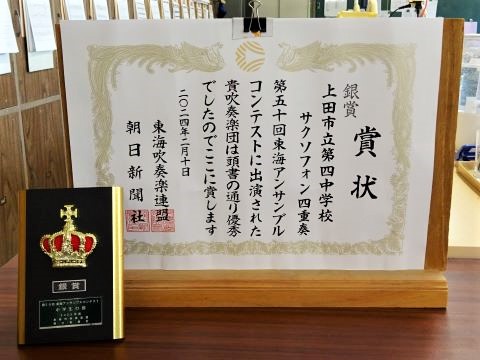 賞状
銀賞
上田市立第四中学校
サクソフォン四重奏
第五十回東海アンサンブル
コンテストに出演された
貴吹奏楽団は頭書の通り優秀
でしたのでここに賞します
二〇二四年二月十日
東海吹奏楽連盟
朝日新聞社
銀賞
中学生の部